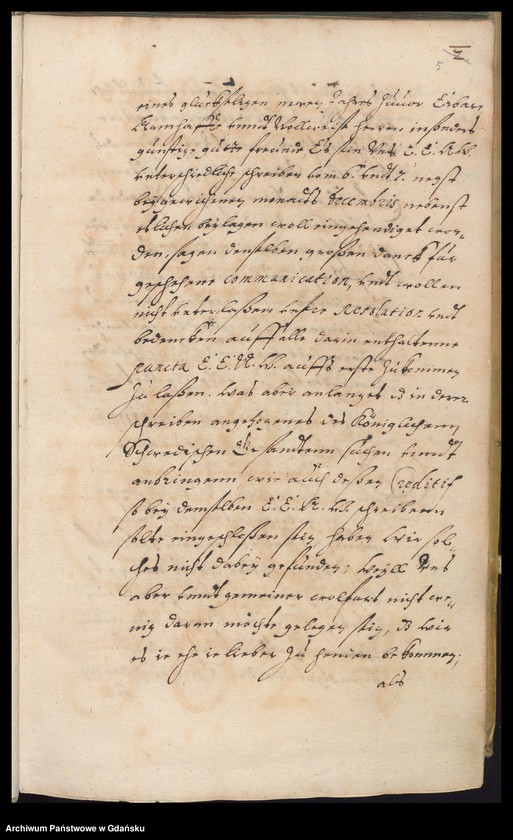 2
5
eines glückseligen neuen Jahres zuuor Erbare
Namhaffte vnndt Wollweise Herren insonders
günstige gutte freunde Es sein Vns E. E. N. W.
vnterschiedliche schreiben vom 6. vndt 7. negst
beygewichenen monatts Decembris nebenst
etlichen beylagen woll eingehendiget wor-
den, sagen denselben großen danck für
geschehene communication, vndt wollen
nicht vnterlaßen vnsere resolution vndt
bedencken auff alle darin enthaltenne
puncta E. E. N. W. auffs erste zukommen
zu laßen. Was aber anlanget dz in derer
schreiben angezogenes des Königlichenn
Schwedischen gesandtenn suchen vnndt
anbringenn wie auch deßen Creditif
so bey demselben E. E. N. W. schreibenn
solte eingeschloßen sein haben wir sol-
ches nicht dabey gefunden; Weyll Vns
aber vnndt gemeiner wolfart nicht we-
nig daran möchte gelegen sein, dz wir
es ie ehe ie lieber zu henden bekommen;
als
Archiwum Państwowe w Gdańsku